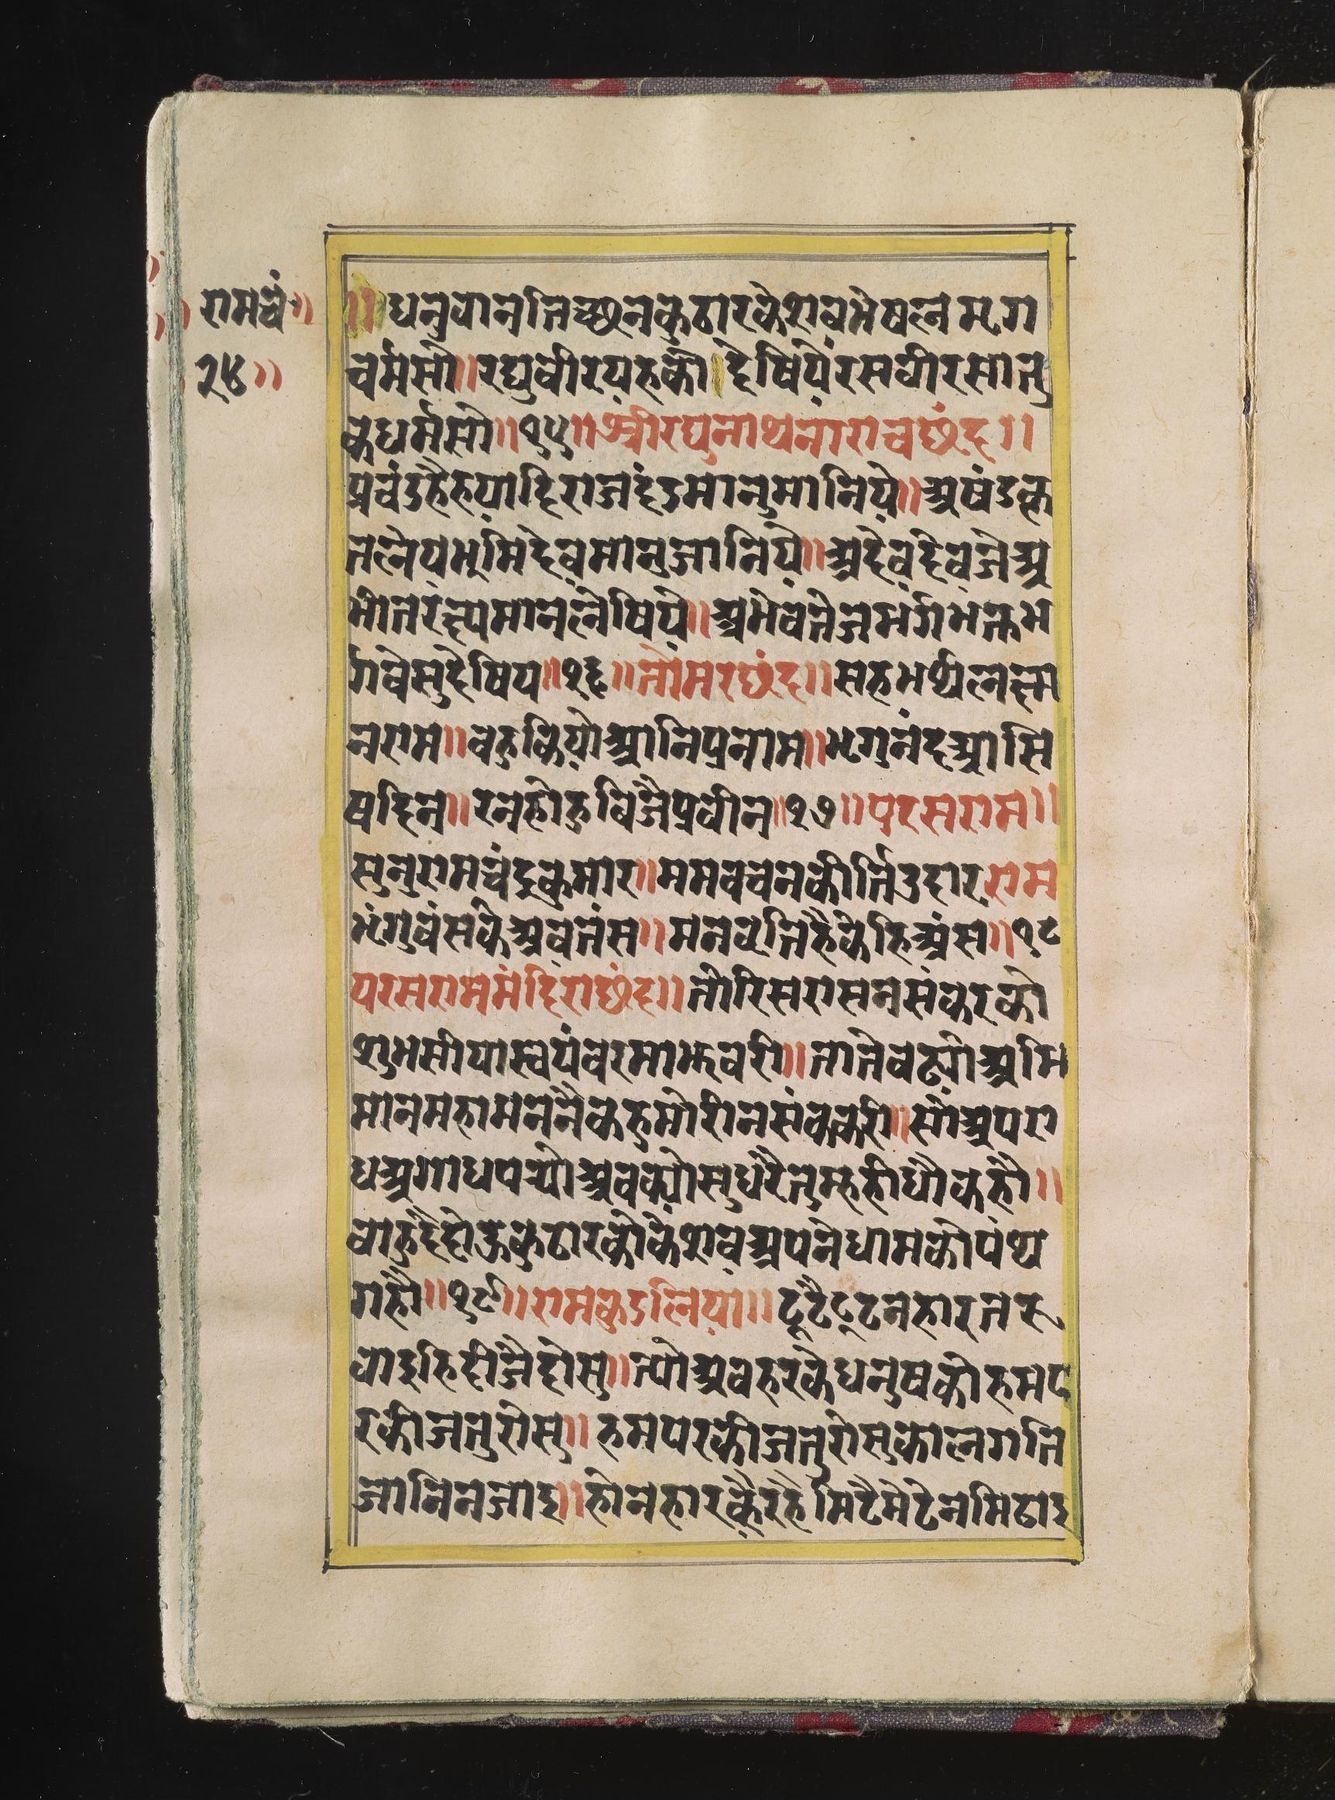 रामचं॥
२४॥
॥धनुवानतिच्छनकुठारकेशवमेषलमृग
चर्मसौ॥रघुवीरयहकौ।देषियेरसवीरसातु
कधर्मसो॥१५॥श्रीरघुनाथनाराचछंद॥
प्रचंडहैहयादिराजदंडमानुमानिये॥अषंडकि
तलेयभुमिदेवमानुजानिये॥अदेवदेवजेअ
भीतरंछमानलेषिये॥अमेवतेजभर्गभक्तभ
र्गवेसुदेषिय॥१६॥तोमरछंद॥सहभर्थलछम
नराम॥चहुकियोआनिप्रनाम॥भृगुनंदआसि
षदिन॥रनहोहुविजैप्रवीन॥१७॥परसराम॥
सुनुरामचंद्रकुमार॥ममवचनकीर्तिउदार॥राम
भृंगुवंसकेअवतंस॥मनवृतिहैकेहिअंस॥१८
परसराममंदिराछंद॥तोरिसरासनसंकरको
शुभसीयास्वयंवरमाझवरी॥तातेवढ्योअभि
मानमहामननैकहुमोरीनसंककरी॥सोअपरा
धअगाधपर्‍योअवक्योसुधरैतुम्हहीधौकहौ॥
वाहुदैदोऊकुठारकोकेशवअपनेधामकोपंथ
गहौ॥१९॥रामकुडलिया॥टूटैटूटनहारतरु
वाइहिदीजैदोसु॥त्योअवहरकेधनुषकोहमप
रकीजतुरोसु॥हमपरकीजतुरोसुकालगति
जानिनजाइ॥होनहारव्कैरहैमिटैमेटेनमिटाइ